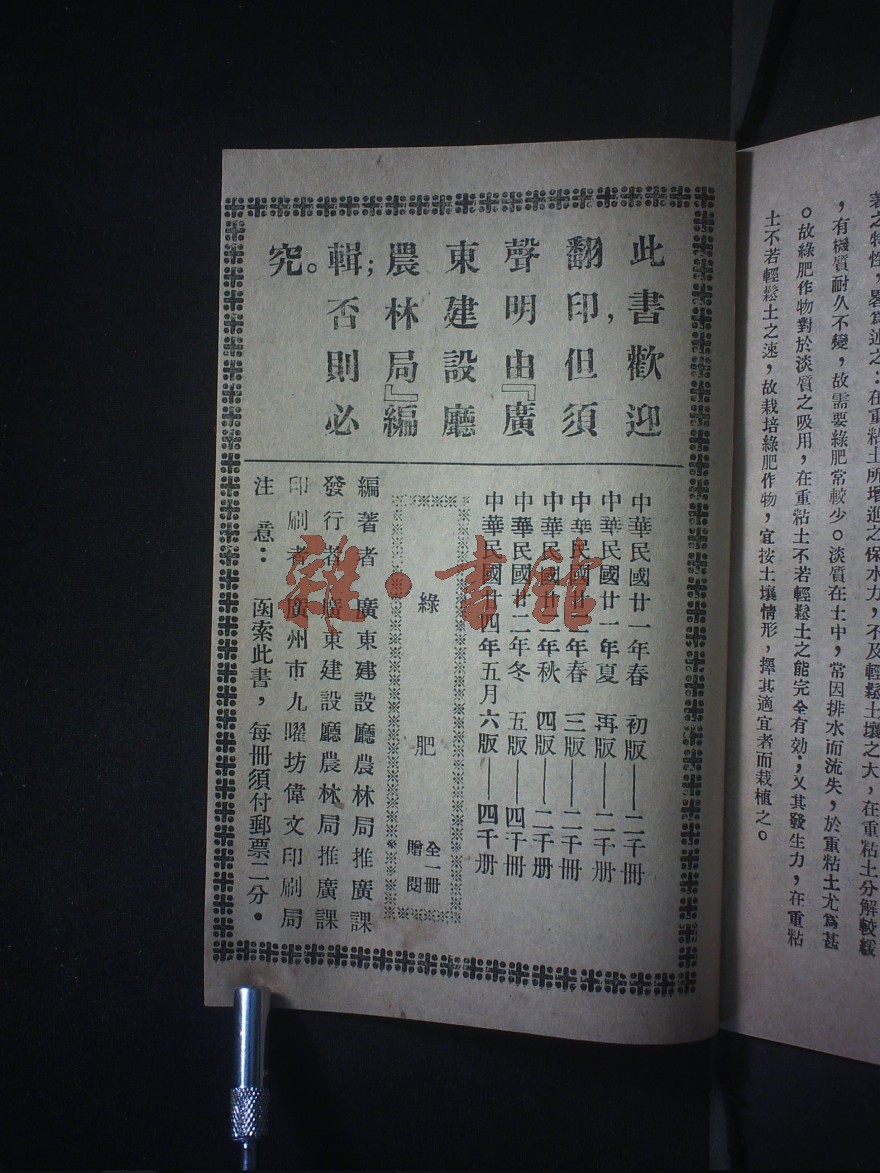 著之特性，畧爲述之：在重粘土所增進之保水力，不及輕鬆土壤之大，在重粘土分解較緩
，有機質耐久不變，故需要綠肥常較少。淡質在土中，常因排水而流失，於重粘土尤爲甚
。故綠肥作物對於淡質之吸用，在重粘土不若輕鬆土之能完全有効；又其發生力，在重粘
土不若輕鬆土之速，故栽培綠肥作物，宜按土壤情形，擇其適宜者而栽植之。
此書歡迎
翻印，但須
聲明由『廣
東建設廳
農林局』編
輯；否則必
究。
中華民國廿一年春 初版——二千冊
中華民國廿一年夏 再版——二千册
中華民國廿二年春 三版——二千冊
中華民國廿二年秋 四版——二千册
中華民國廿二年冬 五版——四千冊
中華民國廿四年五月六版——四千册
綠肥
全一冊
贈閱
編著者 廣東建設廳農林局推廣課
發行者 廣東建設廳農林局推廣課
印刷者 廣州市九曜坊偉文印刷局
注意： 函索此書，每冊須付郵票二分。
雜·書館